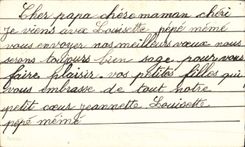 Cher papa chère maman chéri
je viens avec Louisette pépé mémé
vous envoyer nos meilleurs vœux nous
serons toujours bien sage pour vous
faire plaisir. vos petites filles qui
vous embrasse de tout notre
petit cœur jeannette Louisette
pépé mémé